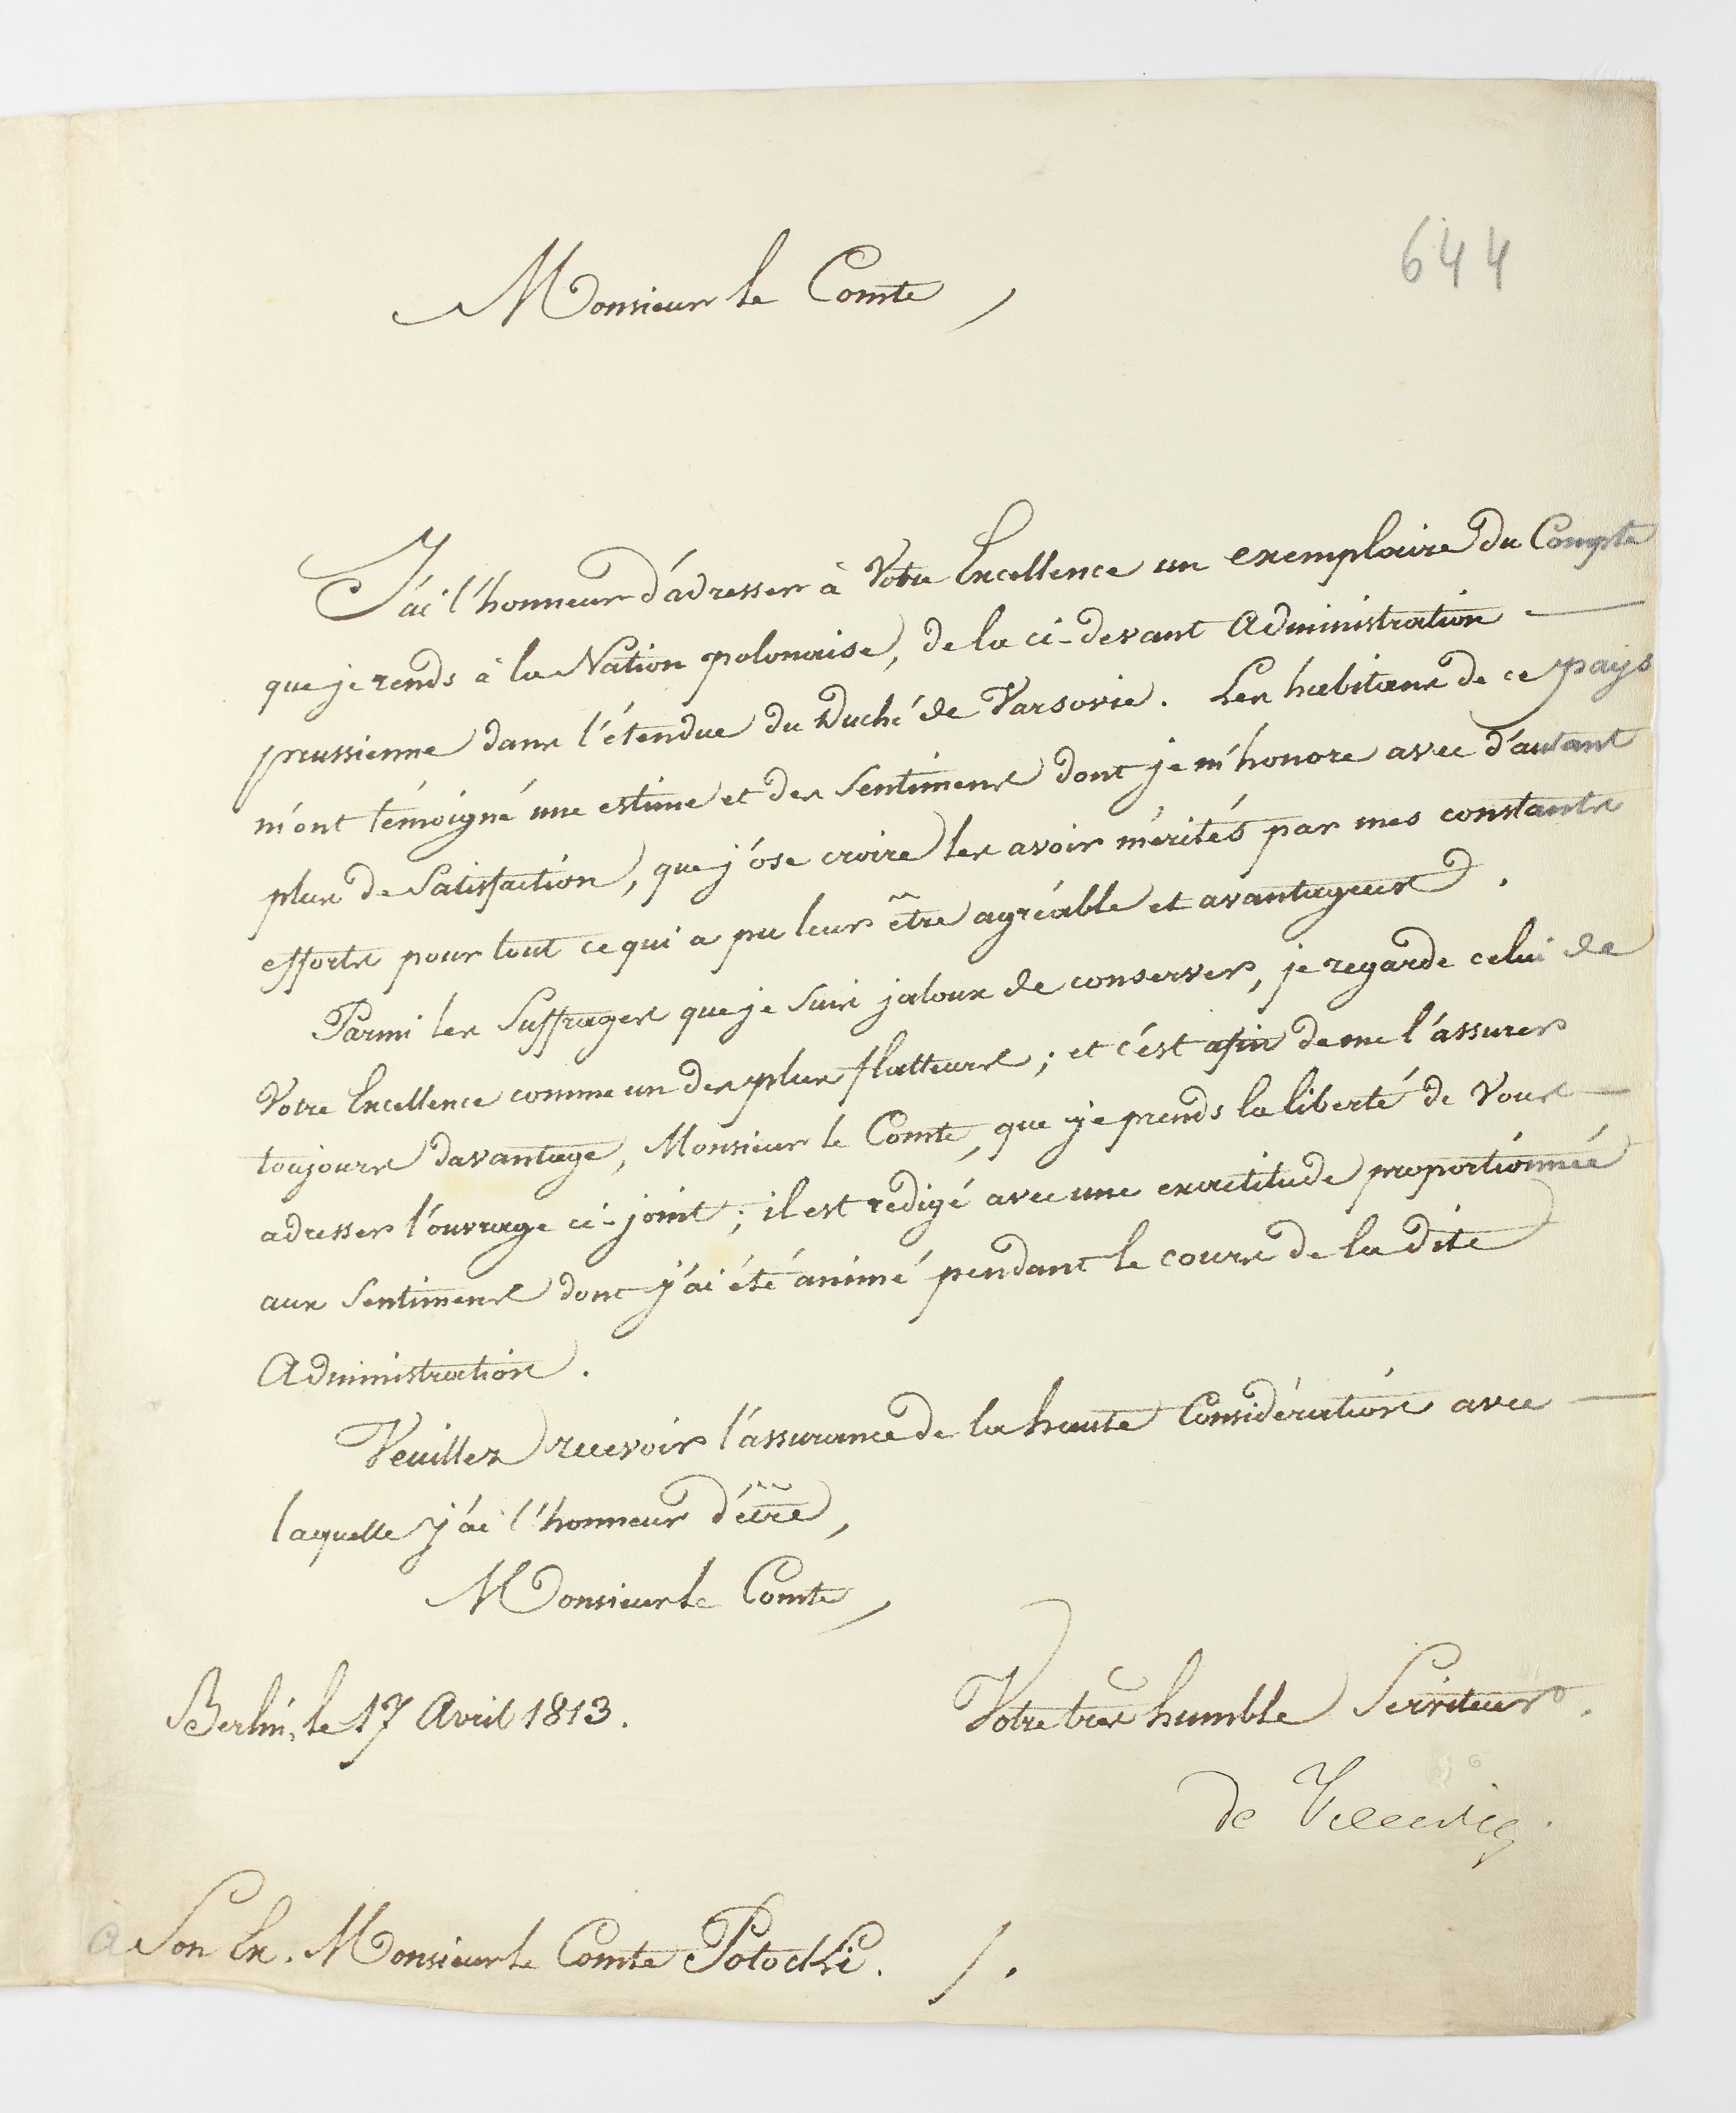 644
Monsieur le Comte,
J'ai l'honneur d'adresser à Votre Excellence un exemplaire du Compte
que je rends à la Nation polonaise, de la ci-devant Administration —
prussienne dans l'étendue du Duché de Varsovie. Les habitans de ce pays
m'ont témoigné une estime et des Sentimens dont je m'honore avec d'autant
plus de Satisfaction, que j'ose croire les avoir mérités par mes constants
efforts pour tout ce qui a pu leur être agréable et avantageux.
Parmi les Suffrages que je suis jaloux de conserver, je regarde celui de
Votre Excellence comme un des plus flatteurs; et c'est afin de me l'assurer
toujours davantage, Monsieur le Comte, que je prends la liberté de Vous —
adresser l'ouvrage ci-joint; il est rédigé avec une exactitude proportionnée
aux Sentimens dont j'ai été animé pendant le cours de la dite
Administration.
Veuillez recevoir l'assurance de la haute Considération avec —
laquelle j'ai l'honneur d'être,
Monsieur le Comte,
Berlin, le 17 Avril 1813.
Votre très humble Serviteur.
de
à Son Ex. Monsieur le Comte Potocki. /.